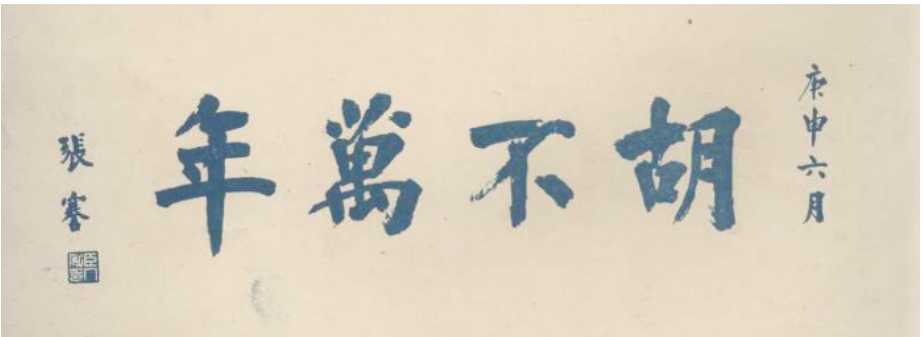 庚申六月
胡不萬年
張謇